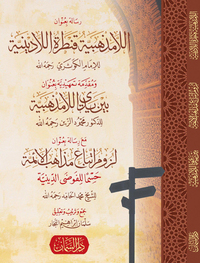 رسالة بعنوان
اللامذهبية قنطرة اللادينية
للإمام الكوثري رحمه الله
ومقدمة تمهيدية بعنوان
بين يدي اللامذهبية
للدكتور محمود الزين رحمه الله
مع رسالة بعنوان
لزوم اتباع مذاهب الأئمة
حسماً للفوضى الدينية
للشيخ محمد الحامد رحمه الله
جمع وترتيب وتعليق
دار السمان